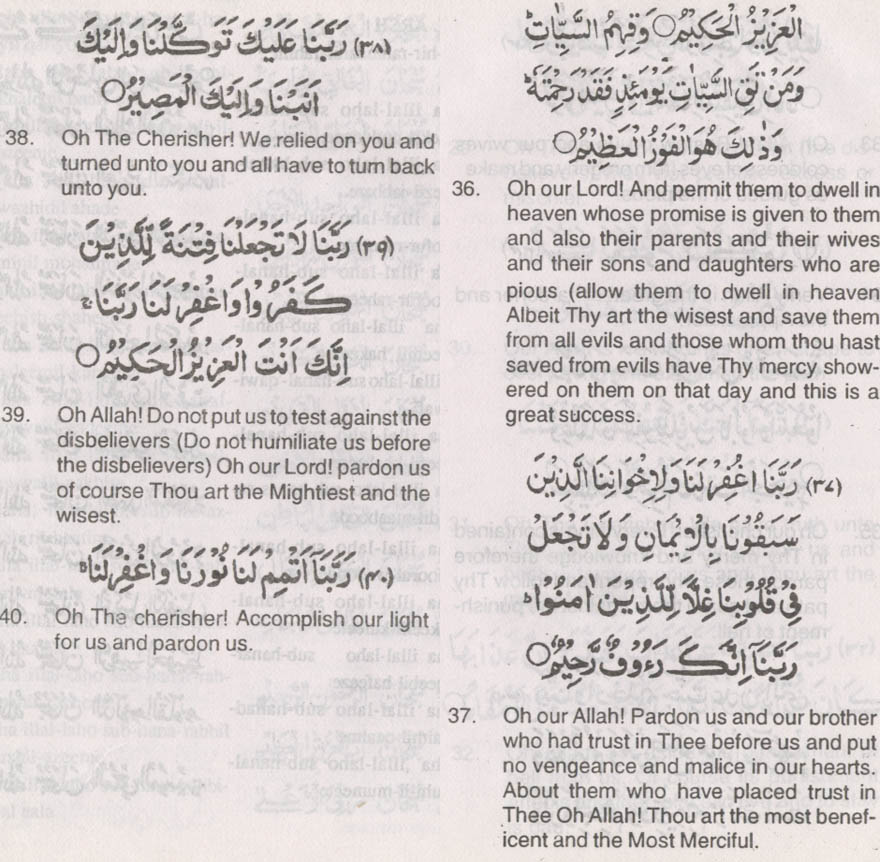 الْعَزِيْزُ الْحَكِيْمُ○ وَقِهِمُ السَّيِّاٰتِ ؕ
وَمَنْ تَقِ السَّيِّاٰتِ يَوْمَئِذٍ فَقَدْ رَحِمْتَهٗ ؕ
وَذٰلِكَ هُوَ الْفَوْزُ الْعَظِيْمُ○
36. Oh our Lord! And permit them to dwell in
heaven whose promise is given to them
and also their parents and their wives
and their sons and daughters who are
pious (allow them to dwell in heaven
Albeit Thy art the wisest and save them
from all evils and those whom thou hast
saved from evils have Thy mercy show-
ered on them on that day and this is a
great success.
(٣٧) رَبَّنَا اغْفِرْ لَنَا وَلِاِخْوَانِنَا الَّذِيْنَ
سَبَقُوْنَا بِالْاِيْمَانِ وَلَا تَجْعَلْ
فِيْ قُلُوْبِنَا غِلًّا لِّلَّذِيْنَ اٰمَنُوْا
رَبَّنَا اِنَّكَ رَءُوْفٌ رَّحِيْمٌ○
37. Oh our Allah! Pardon us and our brother
who had trust in Thee before us and put
no vengeance and malice in our hearts.
About them who have placed trust in
Thee Oh Allah! Thou art the most benef-
icent and the Most Merciful.
(٣٨) رَبَّنَا عَلَيْكَ تَوَكَّلْنَا وَاِلَيْكَ
اَنَبْنَا وَاِلَيْكَ الْمَصِيْرُ○
38. Oh The Cherisher! We relied on you and
turned unto you and all have to turn back
unto you.
(٣٩) رَبَّنَا لَا تَجْعَلْنَا فِتْنَةً لِّلَّذِيْنَ
كَفَرُوْا وَاغْفِرْ لَنَا رَبَّنَا ۚ
اِنَّكَ اَنْتَ الْعَزِيْزُ الْحَكِيْمُ○
39. Oh Allah! Do not put us to test against the
disbelievers (Do not humiliate us before
the disbelievers) Oh our Lord! pardon us
of course Thou art the Mightiest and the
wisest.
(٤٠) رَبَّنَا اَتْمِمْ لَنَا نُوْرَنَا وَاغْفِرْ لَنَا ؕ
40. Oh The cherisher! Accomplish our light
for us and pardon us.